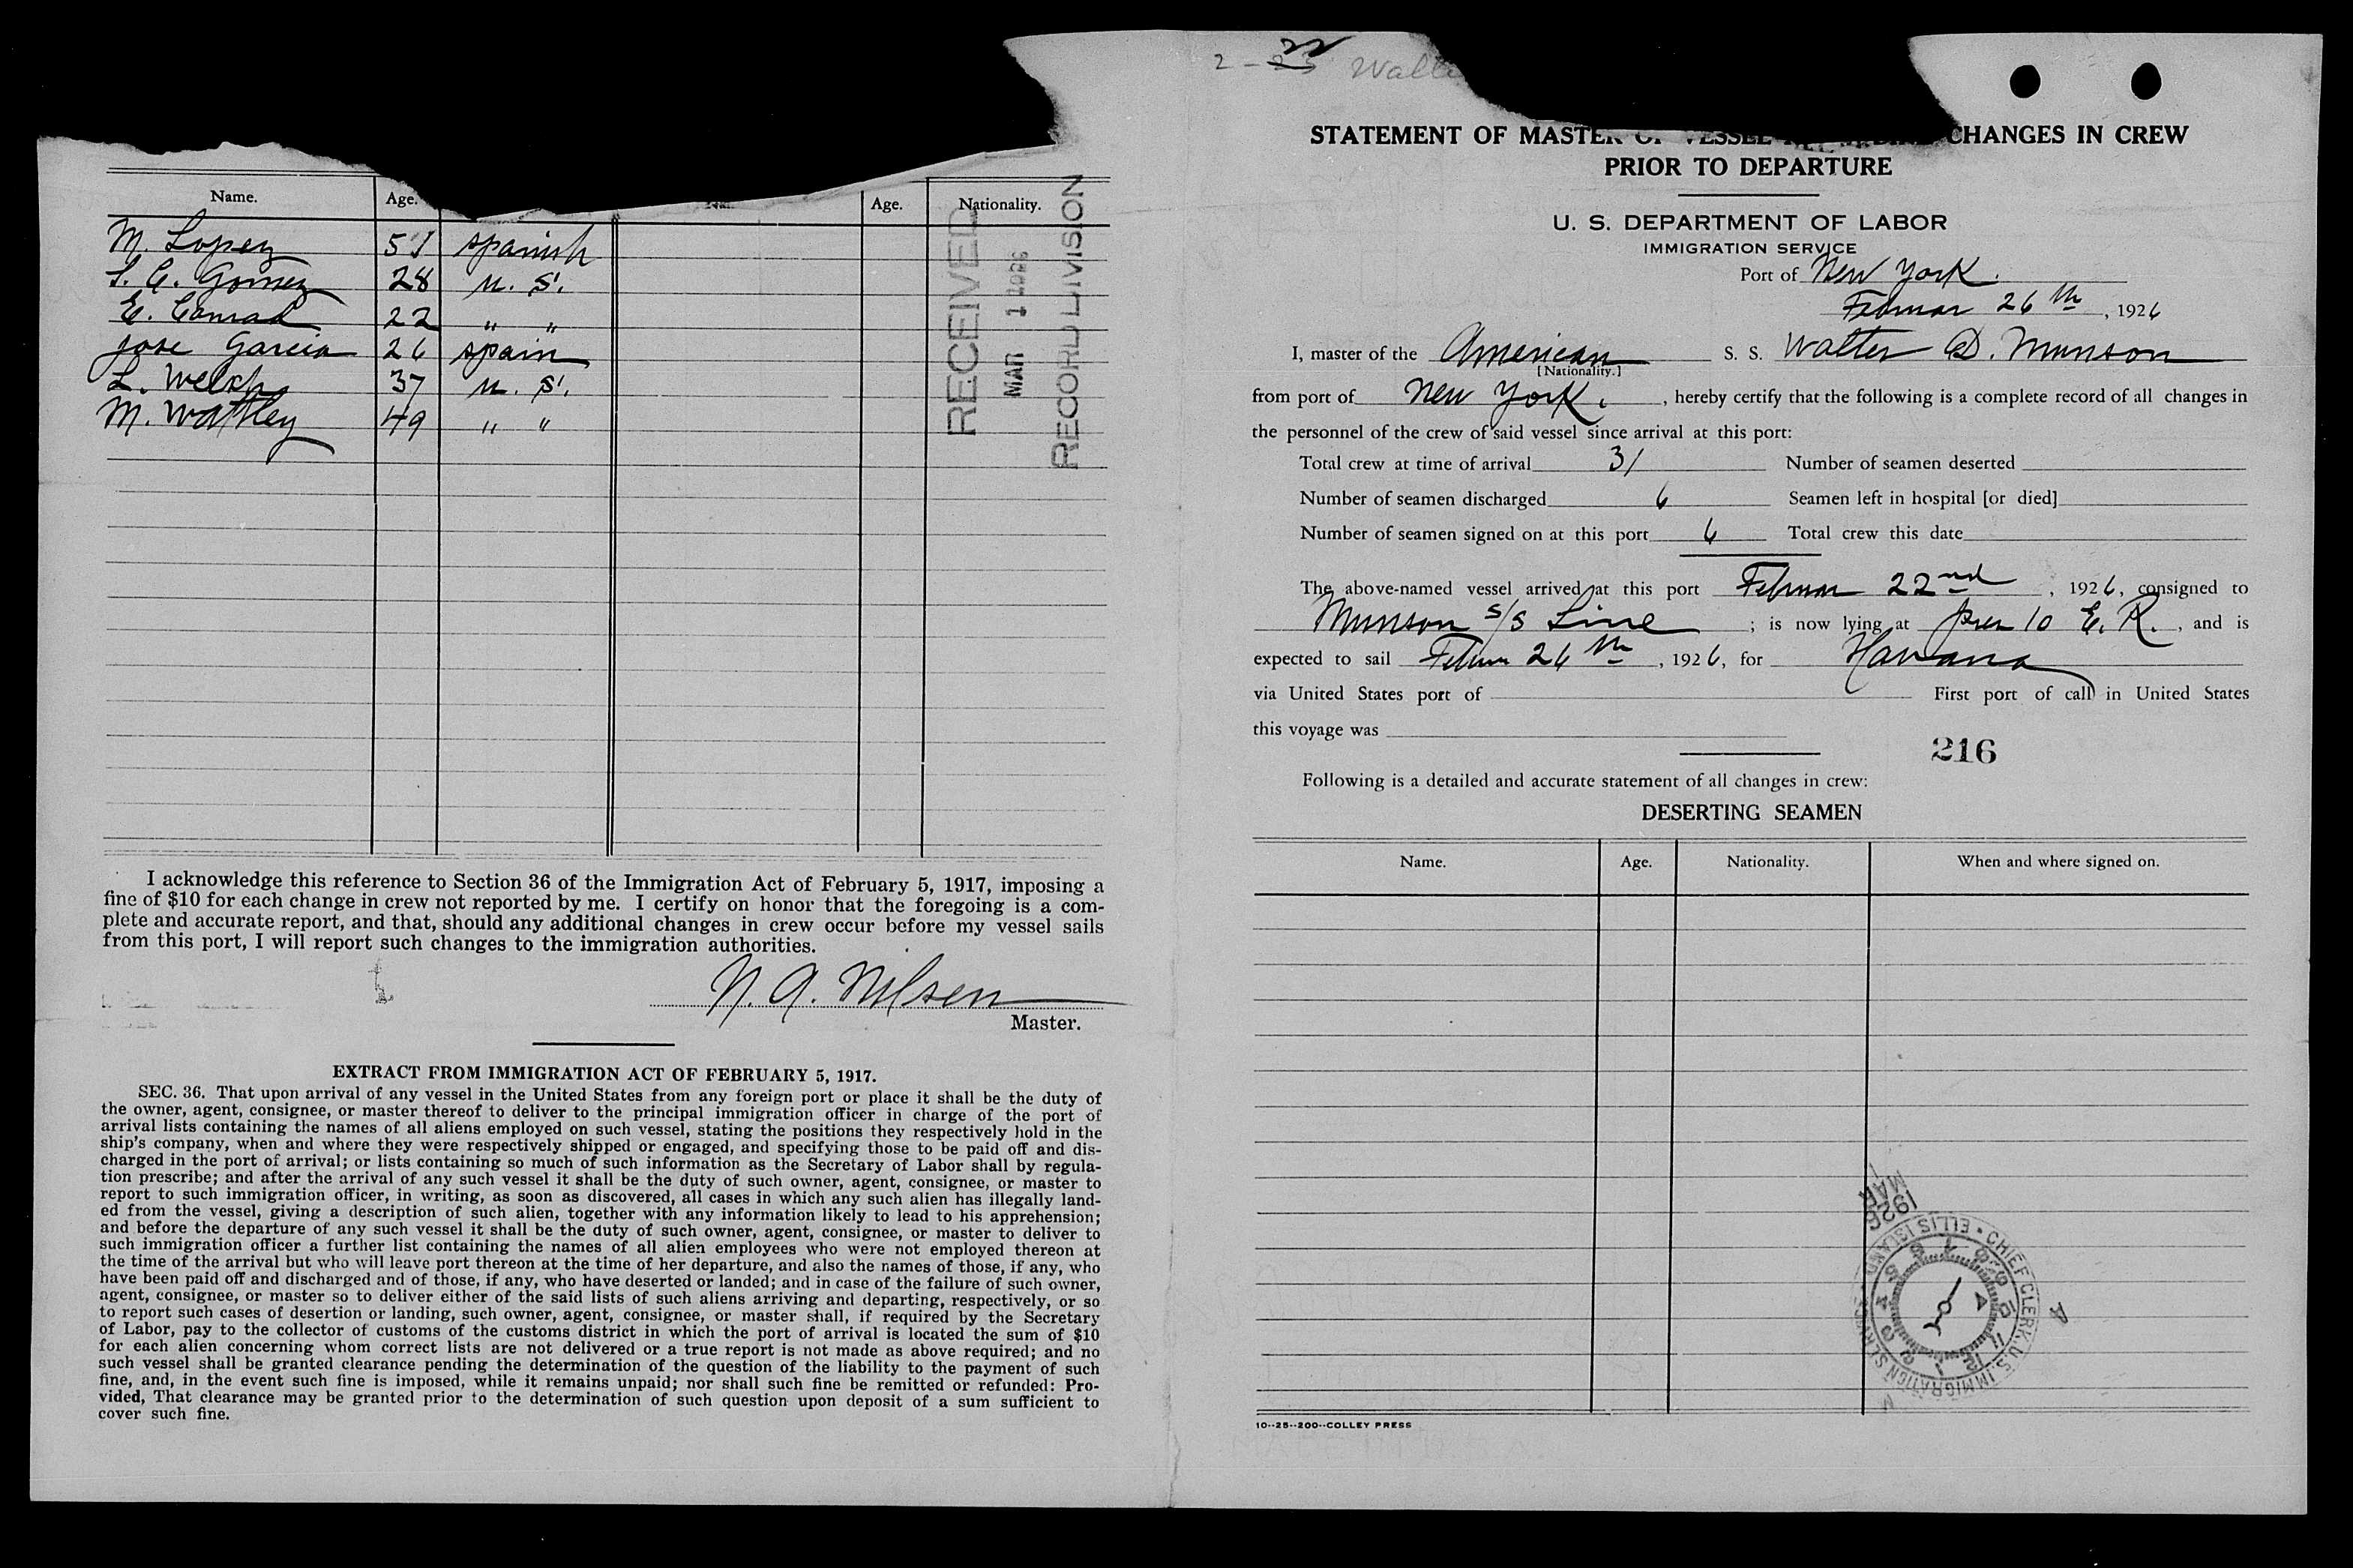 Name. Age. Age. Nationality.
M. Lopez 51 spanish
S. C. Gomez 28 u. s.
E. Conrad 22 " "
jose Garcia 26 spain
L. Welch 37 u. s.
M. Wattley 49 " "
RECEIVED
MAR 1 1926
RECORD DIVISION
I acknowledge this reference to Section 36 of the Immigration Act of February 5, 1917, imposing a
fine of $10 for each change in crew not reported by me. I certify on honor that the foregoing is a com-
plete and accurate report, and that, should any additional changes in crew occur before my vessel sails
from this port, I will report such changes to the immigration authorities.
N. A. Nilsen
Master.
EXTRACT FROM IMMIGRATION ACT OF FEBRUARY 5, 1917.
SEC. 36. That upon arrival of any vessel in the United States from any foreign port or place it shall be the duty of
the owner, agent, consignee, or master thereof to deliver to the principal immigration officer in charge of the port of
arrival lists containing the names of all aliens employed on such vessel, stating the positions they respectively hold in the
ship's company, when and where they were respectively shipped or engaged, and specifying those to be paid off and dis-
charged in the port of arrival; or lists containing so much of such information as the Secretary of Labor shall by regula-
tion prescribe; and after the arrival of any such vessel it shall be the duty of such owner, agent, consignee, or master to
report to such immigration officer, in writing, as soon as discovered, all cases in which any such alien has illegally land-
ed from the vessel, giving a description of such alien, together with any information likely to lead to his apprehension;
and before the departure of any such vessel it shall be the duty of such owner, agent, consignee, or master to deliver to
such immigration officer a further list containing the names of all alien employees who were not employed thereon at
the time of the arrival but who will leave port thereon at the time of her departure, and also the names of those, if any, who
have been paid off and discharged and of those, if any, who have deserted or landed; and in case of the failure of such owner,
agent, consignee, or master so to deliver either of the said lists of such aliens arriving and departing, respectively, or so
to report such cases of desertion or landing, such owner, agent, consignee, or master shall, if required by the Secretary
of Labor, pay to the collector of customs of the customs district in which the port of arrival is located the sum of $10
for each alien concerning whom correct lists are not delivered or a true report is not made as above required; and no
such vessel shall be granted clearance pending the determination of the question of the liability to the payment of such
fine, and, in the event such fine is imposed, while it remains unpaid; nor shall such fine be remitted or refunded: Pro-
vided, That clearance may be granted prior to the determination of such question upon deposit of a sum sufficient to
cover such fine.
2 - 22 Walte
STATEMENT OF MASTER OF VESSEL REGARDING CHANGES IN CREW
PRIOR TO DEPARTURE
U. S. DEPARTMENT OF LABOR
IMMIGRATION SERVICE
Port of New York.
Februar 26th, 1926
I, master of the American S. S. Walter D. Munson
[Nationality.]
from port of New York, hereby certify that the following is a complete record of all changes in
the personnel of the crew of said vessel since arrival at this port:
Total crew at time of arrival 31 Number of seamen deserted
Number of seamen discharged 6 Seamen left in hospital [or died]
Number of seamen signed on at this port 6 Total crew this date
The above-named vessel arrived at this port Februar 22nd, 1926, consigned to
Munson S/S Line; is now lying at pier 10 E. R., and is
expected to sail Februar 26th, 1926, for Havana
via United States port of First port of call in United States
this voyage was
216
Following is a detailed and accurate statement of all changes in crew:
DESERTING SEAMEN
Name. Age. Nationality. When and where signed on.
1926 MAR 1
CHIEF CLERK, U.S. IMMIGRATION SERVICE • ELLIS ISLAND •
10--25--200--COLLEY PRESS